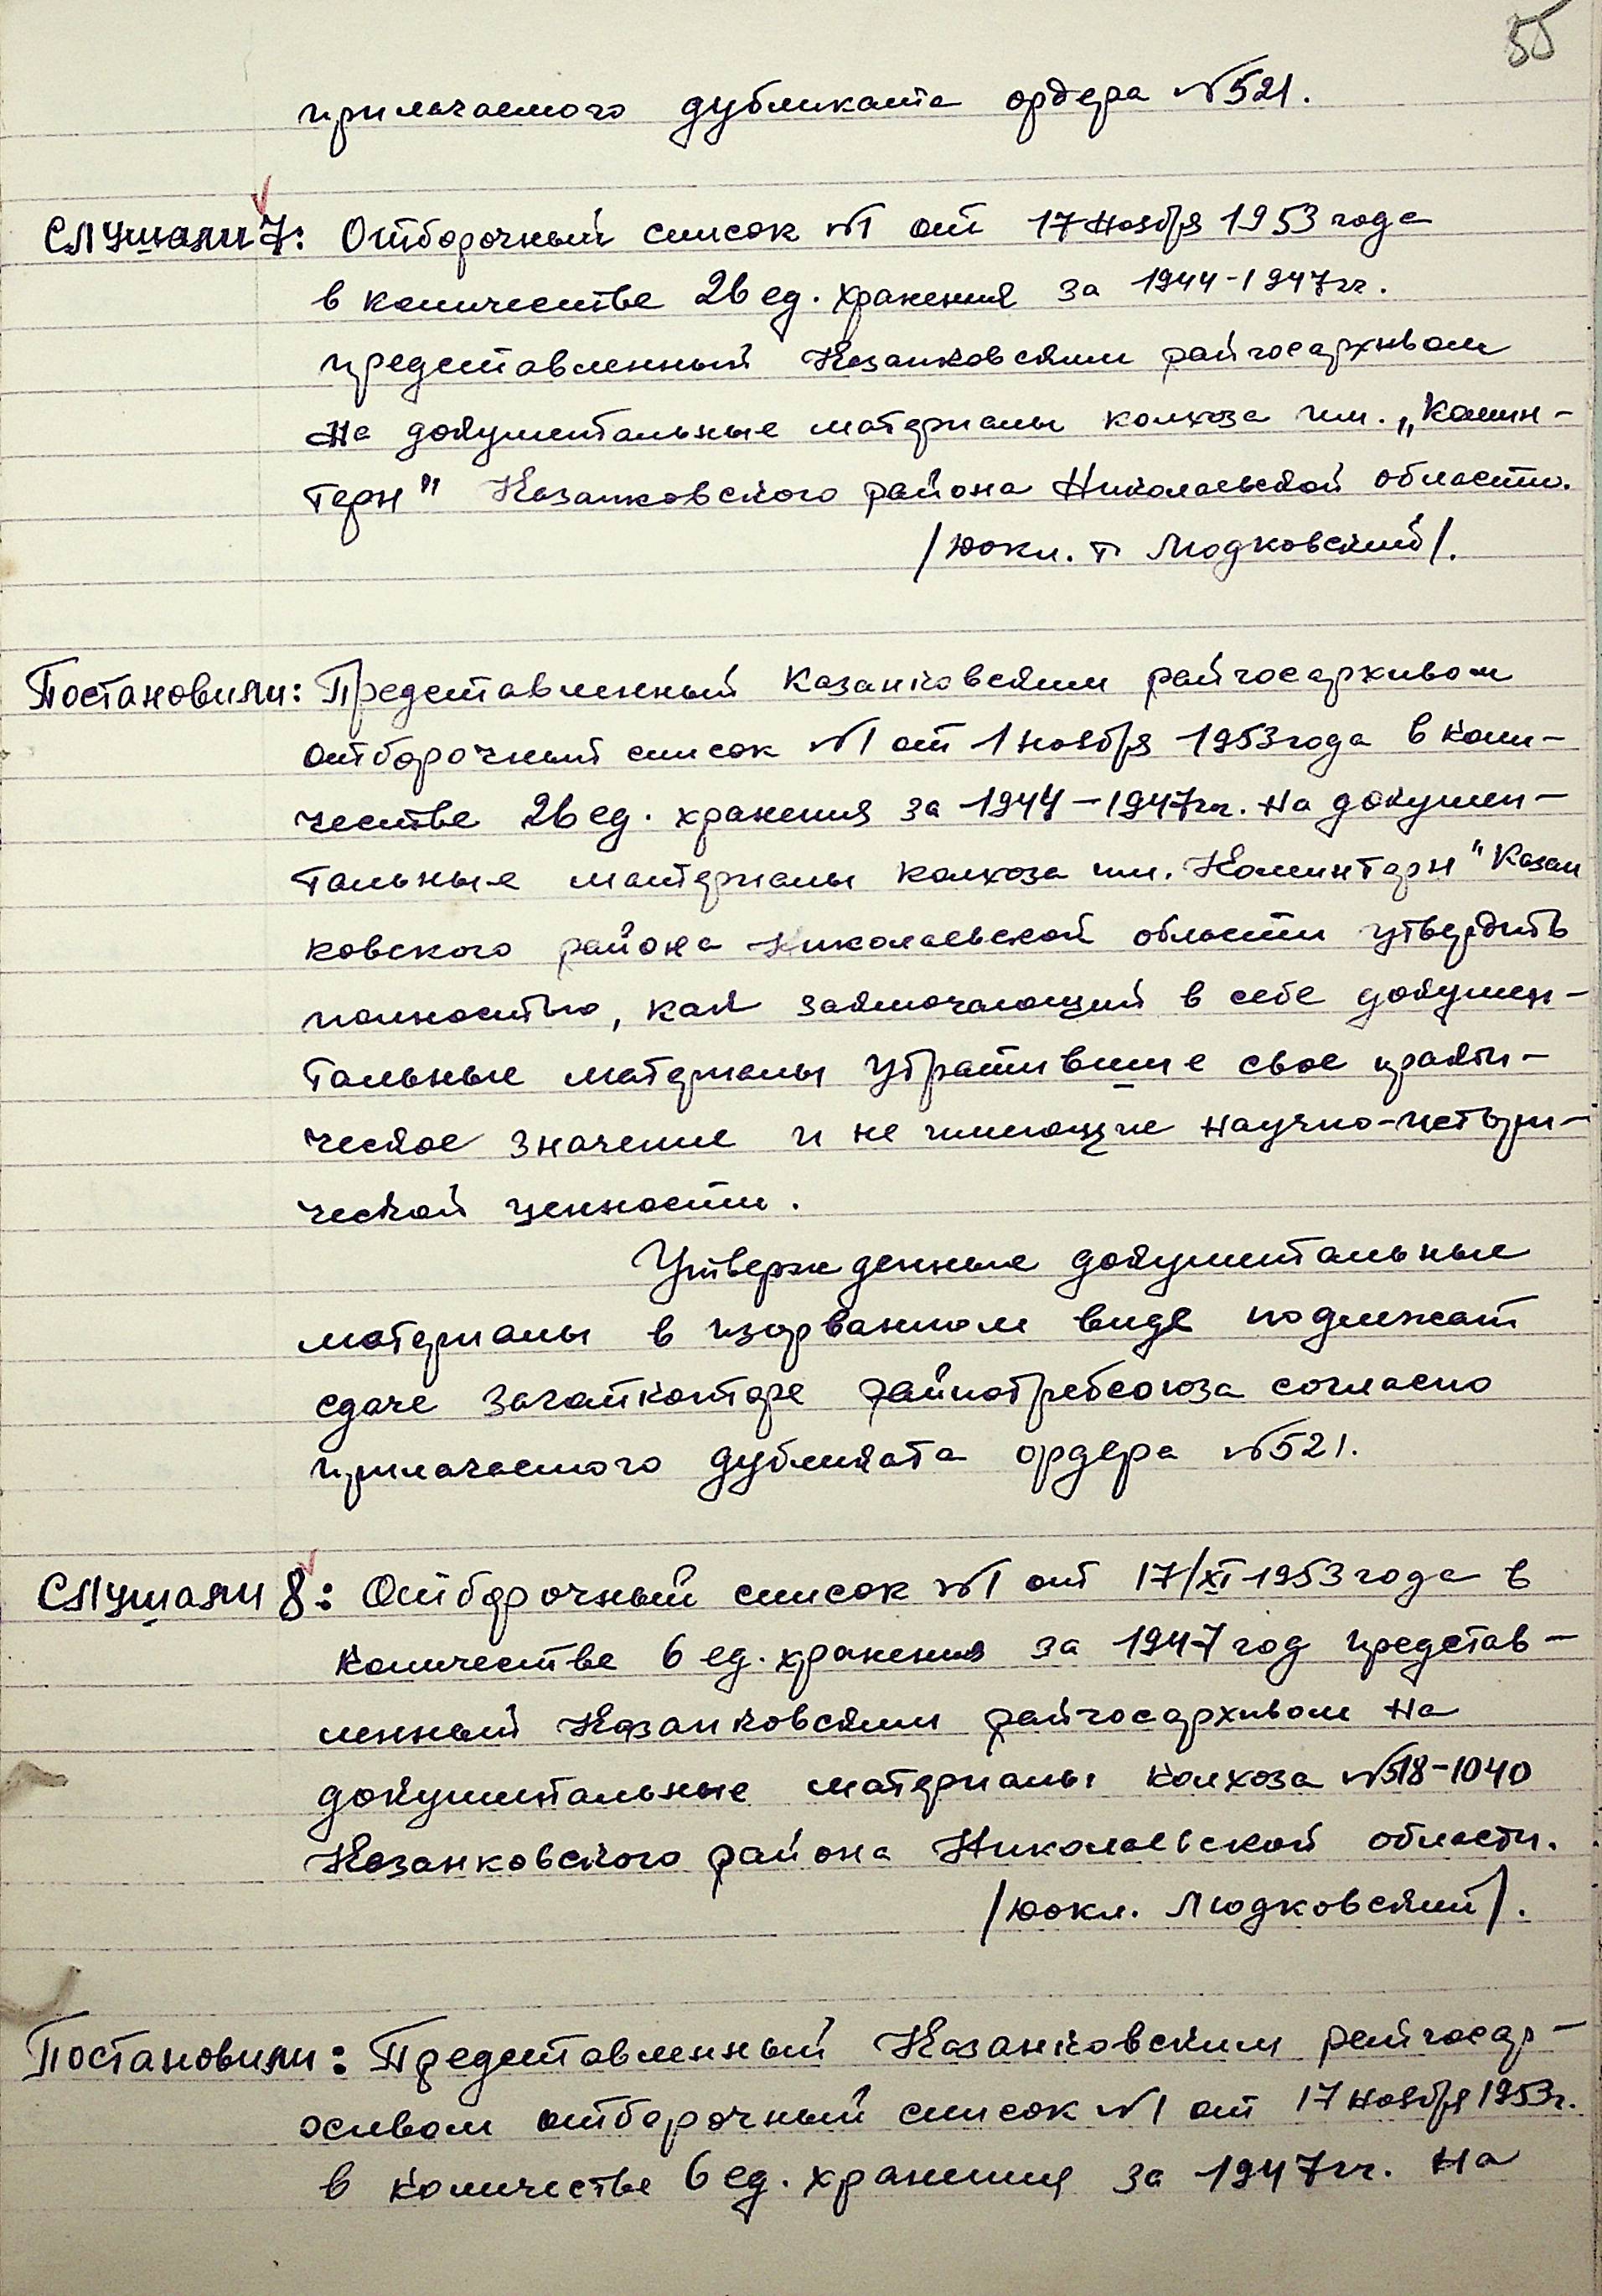 55
прилагаемого дубликата ордера №521.
Слушали 7: Отборочный список №1 от 17 ноября 1953 года
в количестве 26 ед. хранения за 1944-1947гг.
представленный Казанковским райгосархивом
на документальные материалы колхоза им. „Комин-
терн" Казанковского района Николаевской области.
/докл. т Людковский/.
Постановили: Представленный Казанковским райгосархивом
отборочный список №1 от 1 ноября 1953 года в коли-
честве 26 ед. хранения за 1944-1947гг. на докумен-
тальные материалы колхоза им. Коминтерн" Казан
ковского района Николаевской области утвердить
полностью, как заключающий в себе докумен-
тальные материалы утратившие свое практи-
ческое значение и не имеющие научно-истори-
ческой ценности.
Утвержденные документальные
материалы в изорванном виде подлежат
сдаче заготконторе райпотребсоюза согласно
прилагаемого дубликата ордера №521.
Слушали 8: Отборочный список №1 от 17/XI-1953 года в
количестве 6 ед. хранения за 1947 год представ-
ленный Казанковским райгосархивом на
документальные материалы колхоза №518-1040
Казанковского района Николаевской области.
/докл. Людковский/.
Постановили: Представленный Казанковским райгосар-
хивом отборочный список №1 от 17 ноября 1953г.
в количестве 6 ед. хранения за 1947гг. на